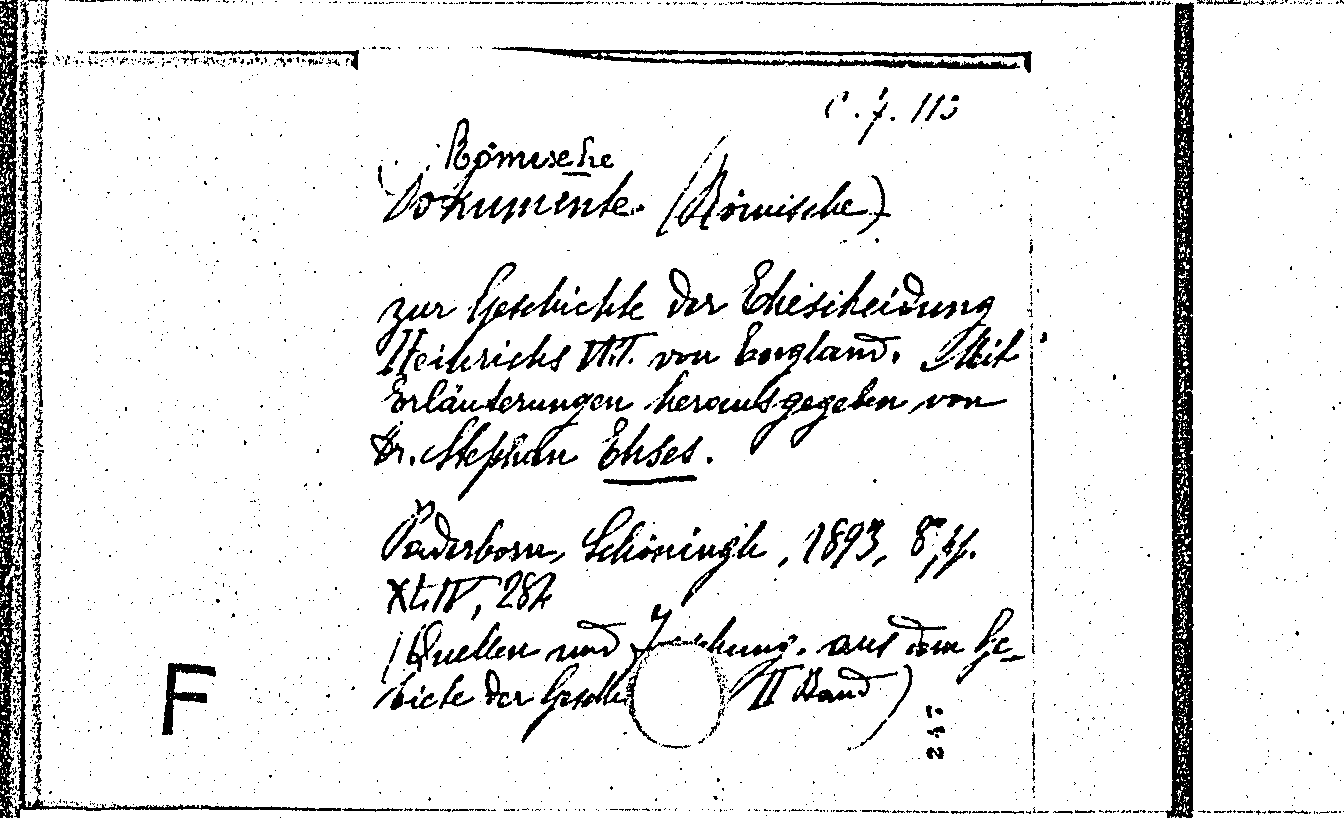 C. 7. 113
Römische
Dokumente. (Römische)
zur Geschichte der Ehescheidung
Heinrichs VIII. von England. Mit
Erläuterungen herausgegeben von
Dr. Stephan Ehses.
Paderborn, Schöningh, 1893, 8°, pp.
XLIV, 284
(Quellen und Forschung. aus dem Ge-
biete der Geschi II Band)
F
247